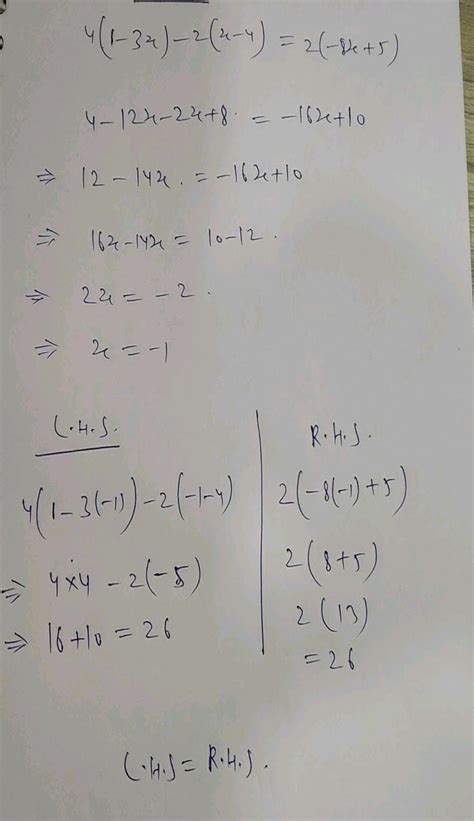 4(1-3x)-2(x-4) = 2(-8x+5)
4-12x-2x+8. = -16x+10
⇒ 12-14x. = -16x+10
⇒ 16x-14x = 10-12.
⇒ 2x = -2.
⇒ x = -1
L.H.S.
4(1-3(-1))-2(-1-4)
⇒ 4×4 - 2(-5)
⇒ 16+10 = 26
R.H.S.
2(-8(-1)+5)
2(8+5)
2(13)
=26
L.H.S = R.H.S.